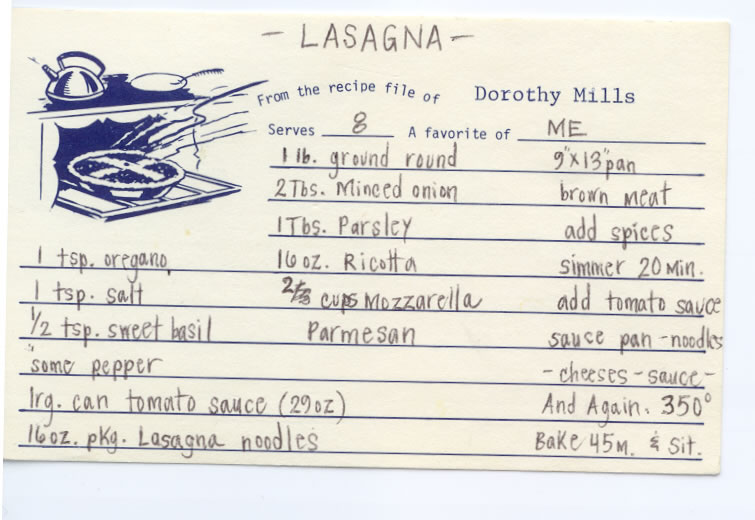 - LASAGNA -
From the recipe file of Dorothy Mills
Serves 8 A favorite of ME
1 lb. ground round 9"x13" pan
2 Tbs. Minced onion brown meat
1 Tbs. Parsley add spices
1 tsp. oregano 16 oz. Ricotta simmer 20 Min.
1 tsp. salt 2 cups Mozzarella add tomato sauce
1/2 tsp. sweet basil Parmesan sauce pan - noodles
"some" pepper - cheeses - sauce -
1 rg. can tomato sauce (29 oz) And Again. 350°
16 oz. pkg. Lasagna noodles Bake 45 m. & Sit.